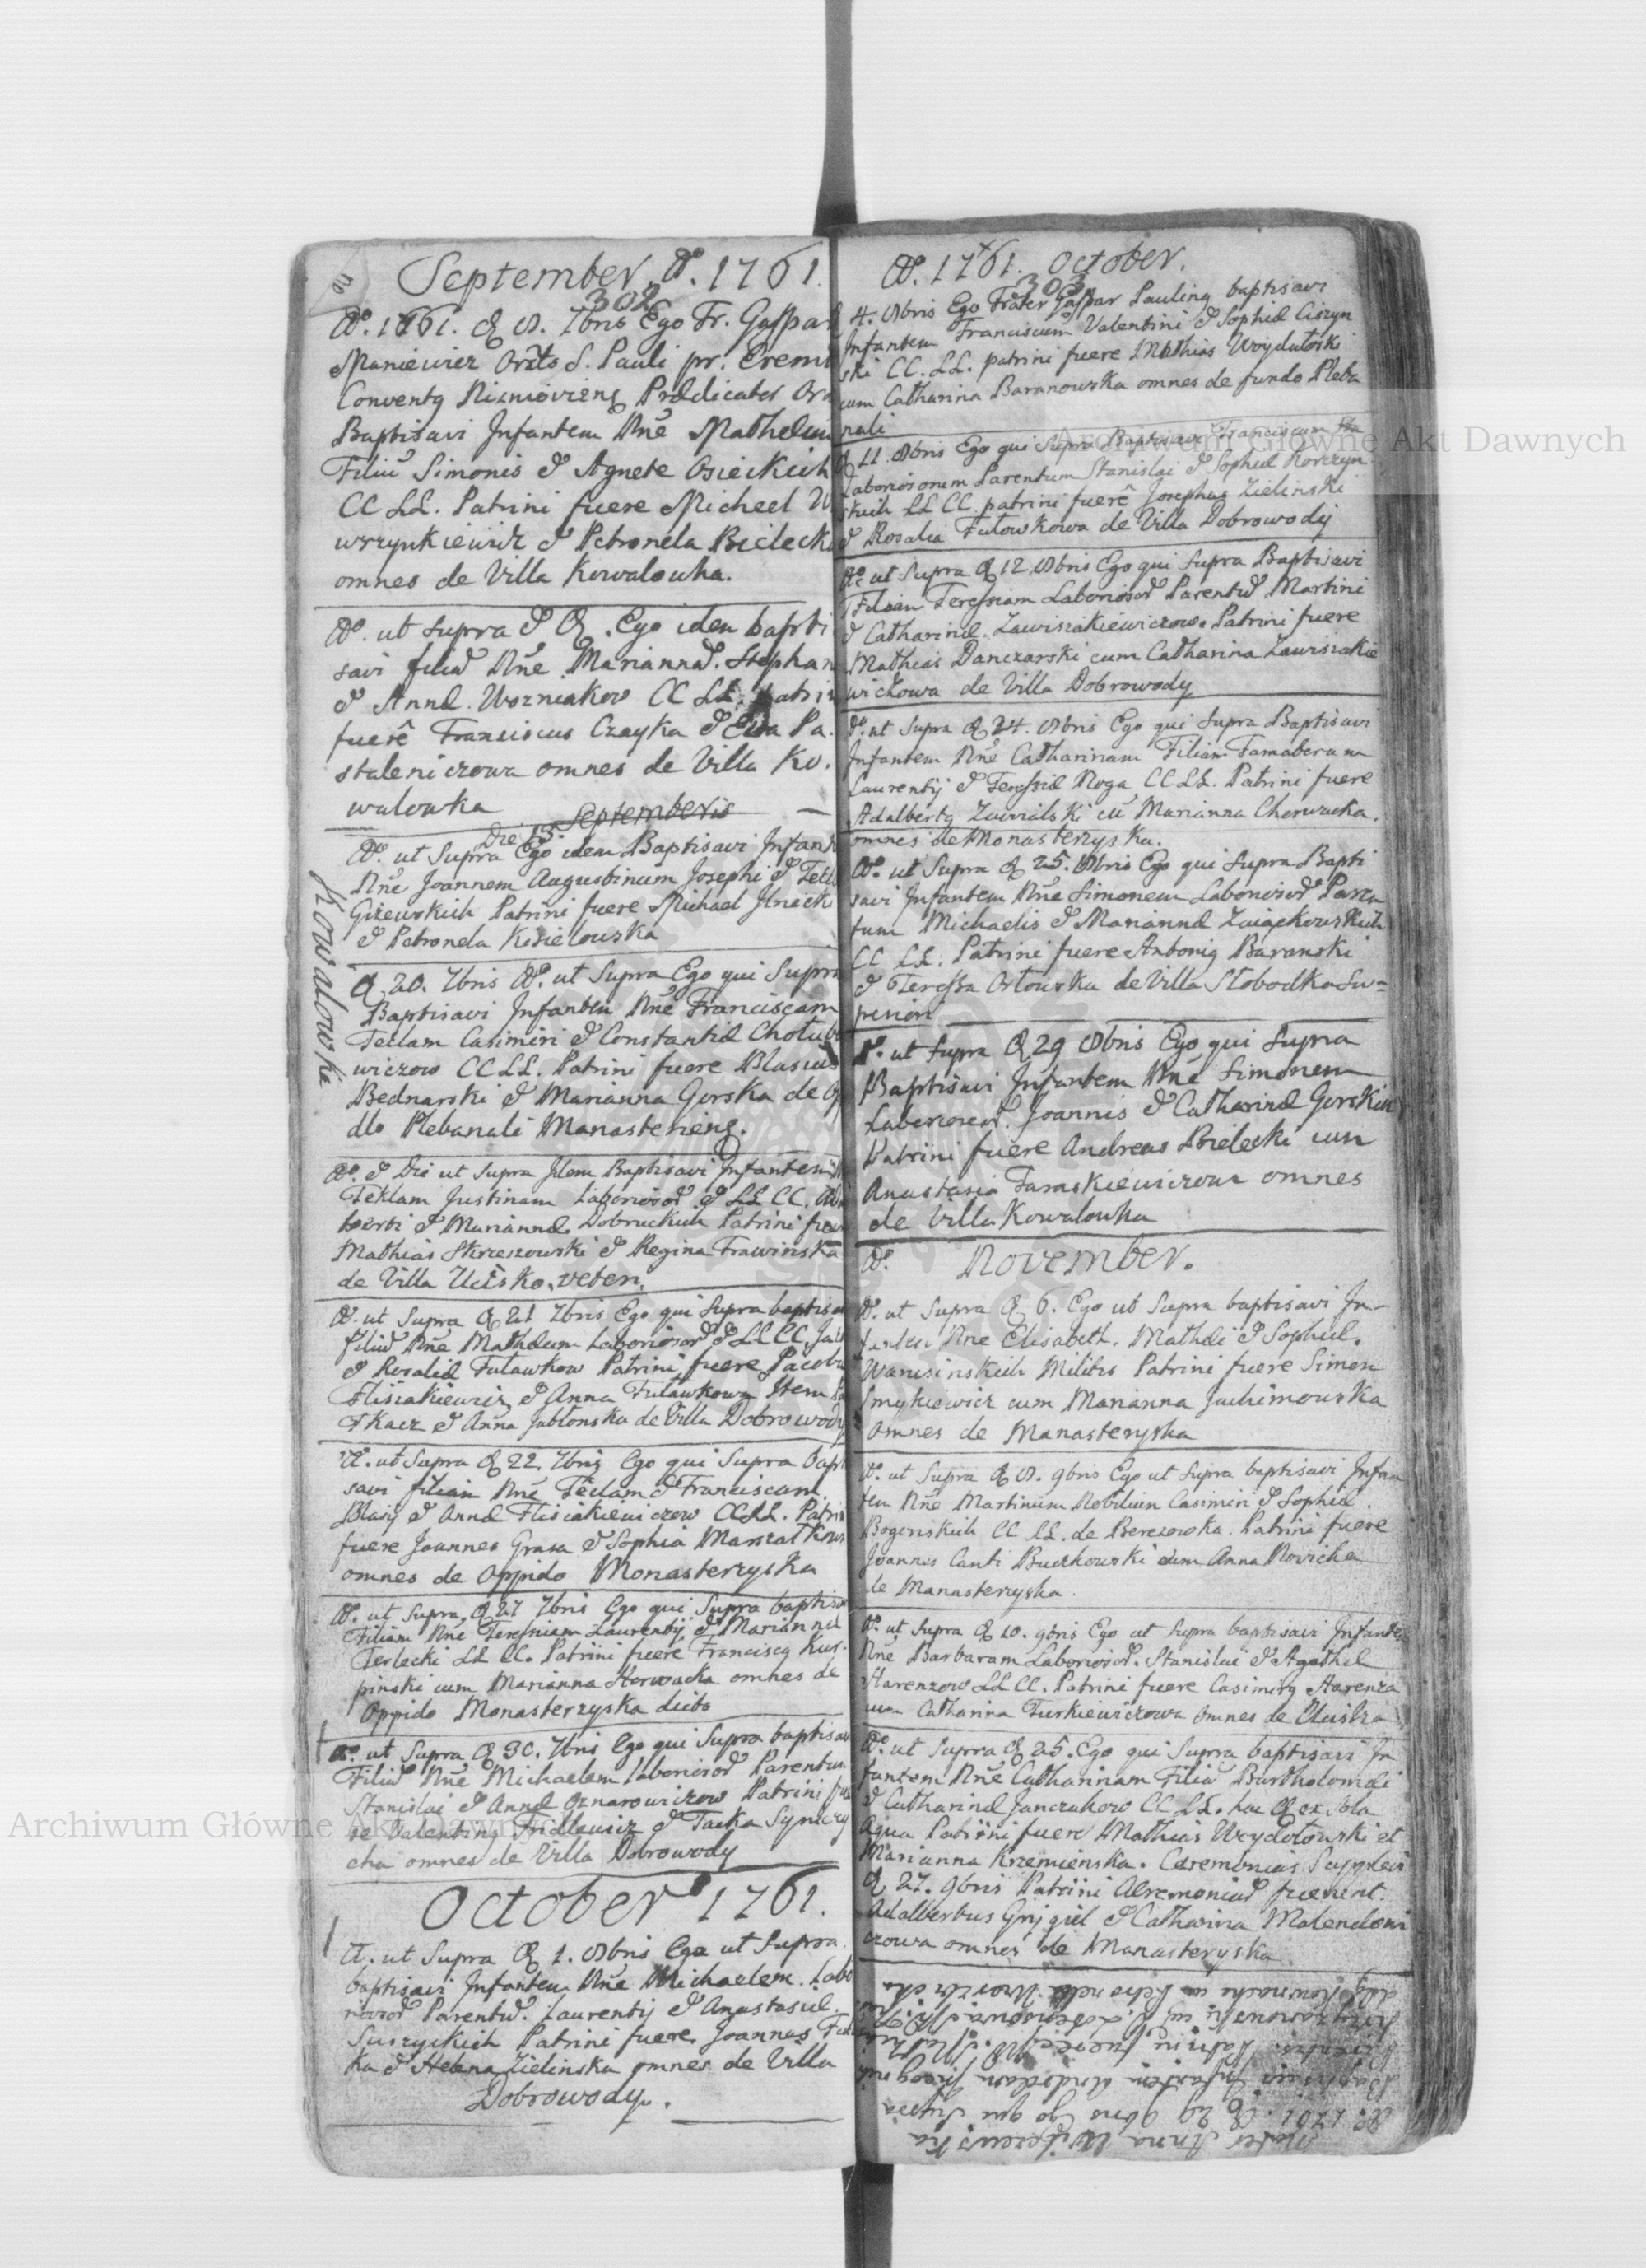 September Aº. 1761.
302
Aº. 1761. d. 8. 7bris Ego Fr. Gaspar
Maniewicz Ords S. Pauli pr. Eremi
Conventq Nizniovienq Prædicator Ord
Baptisavi Infantem Nñe Mathæum
Filiũ Simonis & Agnetæ Osieckich
CC LL. Patrini fuere Michael W
wrzynkiewicz & Petronela Bielecka
omnes de Villa Kowalowka.
Aº. ut supra & d. Ego idem bapti
savi filiã Nñe Mariannã. Stephan
& Annæ Wozniakow CC LL. patrin
fuerê Franciscus Czayka & Ewa Pa.
staleniczowa omnes de Villa Ko.
walowka
Die 15. Septembris
Aº. ut Supra Ego idem Baptisavi Infant
Nñe Joannem Augustinum Josephi & Tekl
Gizewskich Patrini fuere Michael Ilnicki
& Petronela Kisielowska
Kowalowka
d 20. 7bris Aº. ut Supra Ego qui Supra
Baptisavi Infantem Nñe Franciscam
Teclam Casimiri & Constantiæ Chołub
wiczow CC LL. Patrini fuere Blasius
Bednarski & Marianna Gorska de
Plebanali Monasteriens.
Aº. & Die ut Supra Idem Baptisavi Infantem
Teklam Justinam Laboriosor & LL CC.
berti & Mariannæ Dobruckich Patrini fuer
Mathias Strzeszowski & Regina Trawinska
de Villa Ucisko. veteri.
Aº. ut Supra d 21 7bris Ego qui Supra baptisa
filiũ Nñe Mathæum Laboriosor & LL CC.
& Rosaliæ Futawkow Patrini fuere Jacobu
Flisiakiewicz & Anna Futawkowa Item
Tkacz & Anna Jabłonska de Villa Dobrowody
Aº. ut Supra d 22. 7bris Ego qui Supra bapt
savi filiam Nñe Teclam & Franciscam
Blasij & Annæ Flisiakiewiczow CC LL. Patrin
fuere Joannes Grasa & Sophia Marszałkow
omnes de Oppido Monasterzyska
Aº. ut Supra d 27 7bris Ego qui Supra baptisa
Filiam Nñe Teressiam Laurentij & Mariannæ
Terlecki LL CC. Patrini fuere Franciscq Kus.
pinski cum Marianna Horwacka omnes de
Oppido Monasterzyska
Aº. ut Supra d 30. 7bris Ego qui Supra baptisav
Filiũ Nñe Michaelem Laboriosor Parentum
Stanislai & Annæ Oznarowiczow Patrini fue
re Valentinq Fridlewicz & Tacka Syniczy
cha omnes de Villa Dobrowody
October 1761.
Aº. ut Supra d 1. 8bris Ego ut Supra
baptisavi Infantem Nñe Michaelem. Labo
riosor Parentũ. Laurentij & Anastasiæ.
Suszyckich Patrini fuere, Joannes
ka & Helena Zielinska omnes de Villa
Dobrowody.
Aº. 1761. October.
303
4. 8bris Ego Frater Gaspar Paulinq baptisavi
Infantem Franciscum Valentini & Sophiæ Ciszyn
ski CC. LL. patrini fuere Mathias Woydałoski
cum Catharina Baranowska omnes de fundo Pleba
nali
d 11. 8bris Ego qui Supra Baptisavi Franciscum
Laboriosorum Parentum Stanislai & Sophiæ Korczyn
skich LL CC. patrini fuerê Josephus Zielinski
& Rosalia Futowkowa de Villa Dobrowody
Aº. ut Supra d 12. 8bris Ego qui Supra Baptisavi
Filiam Teressiam Laboriosor Parentũ Martini
& Catharinæ. Zawisiakiewiczow. Patrini fuere
Mathias Danczarski cum Catharina Zawisiakie
wiczowa de Villa Dobrowody
Aº. ut Supra d 24. 8bris Ego qui Supra Baptisavi
Infantem Nñe Catharinam Filiam Famaberum
Laurentij & Teressiæ Noga CC LL. Patrini fuere
Adalbertq Zawialski cũ Marianna Chorwacka.
omnes de Monasterzyska.
Aº. ut Supra d 25. 8bris Ego qui Supra Bapti
savi Infantem Nñe Simonem Laboriosor Paren
tum Michaelis & Mariannæ Zaiączkowskich
CC LL. Patrini fuere Antoniq Baranski
& Teressa Orłowska de Villa Słobodka Su=
periori
Aº. ut Supra d 29 8bris Ego qui Supra
Baptisavi Infantem Nñe Simonem
Laboriosor. Joannis & Catharinæ Gorskich
Patrini fuere Andreas Bielecki cum
Anastasia Taraskiewiczowa omnes
de Villa Kowalowka
Aº. November.
Aº. ut Supra d 6. Ego ut Supra baptisavi In-
fantem Nñe Elisabeth. Mathæi & Sophiæ.
Wanisinskich Militis Patrini fuere Simon
Smykiewicz cum Marianna Jachimowska
omnes de Manasteryska
Aº. ut Supra d 8. 9bris Ego ut Supra baptisavi Infan
tem Nñe Martinum Nobilium Casimiri & Sophiæ.
Bogenskich CC LL. de Berezowka. Patrini fuere
Joannes Canti Buczkowski cum Anna Novicka
de Manasterzyska.
Aº. ut Supra d 10. 9bris Ego ut Supra baptisavi Infante
Nñe Barbaram Laboriosor. Stanislai & Agathæ
Harenzow LL CC. Patrini fuere Casimirq Harenza
cum Catharina Turkiewiczowa omnes de Uciska
Aº. ut Supra d 25. Ego qui Supra baptisavi In
fantem Nñe Catharinam Filiã Bartholomæi
& Catharinæ Janczukow CC LL. hac d ex sola
aqua Patrini fuere Mathias Wrydołowski et
Marianna Krzemienska. Ceremonias Supplevi
d 27. 9bris Patrini Ceremoniarũ fuerunt.
Adalbertus Gnjgiel & Catharina Malendowi
czowa omnes de Manasteryska
Aº 1761. d 29 9bris Ego qui Supra
Baptisavi Infantem Andream
Patrini fuere
Archiwum Główne Akt Dawnych
Archiwum Główne Akt Dawnych